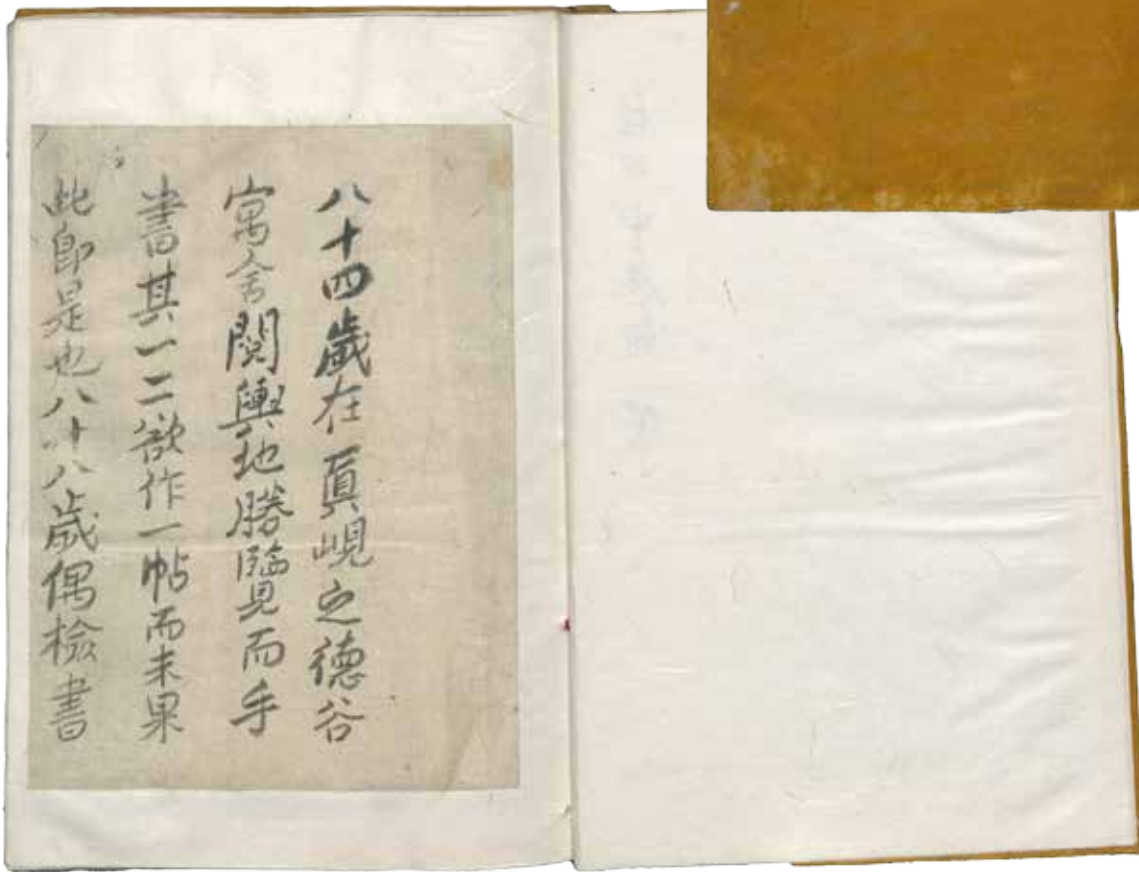 八十四歲在貢峴之德谷
寓舍閱輿地勝覽而手
書其一二欲作一帖而未果
此卽是也八十八歲偶檢書